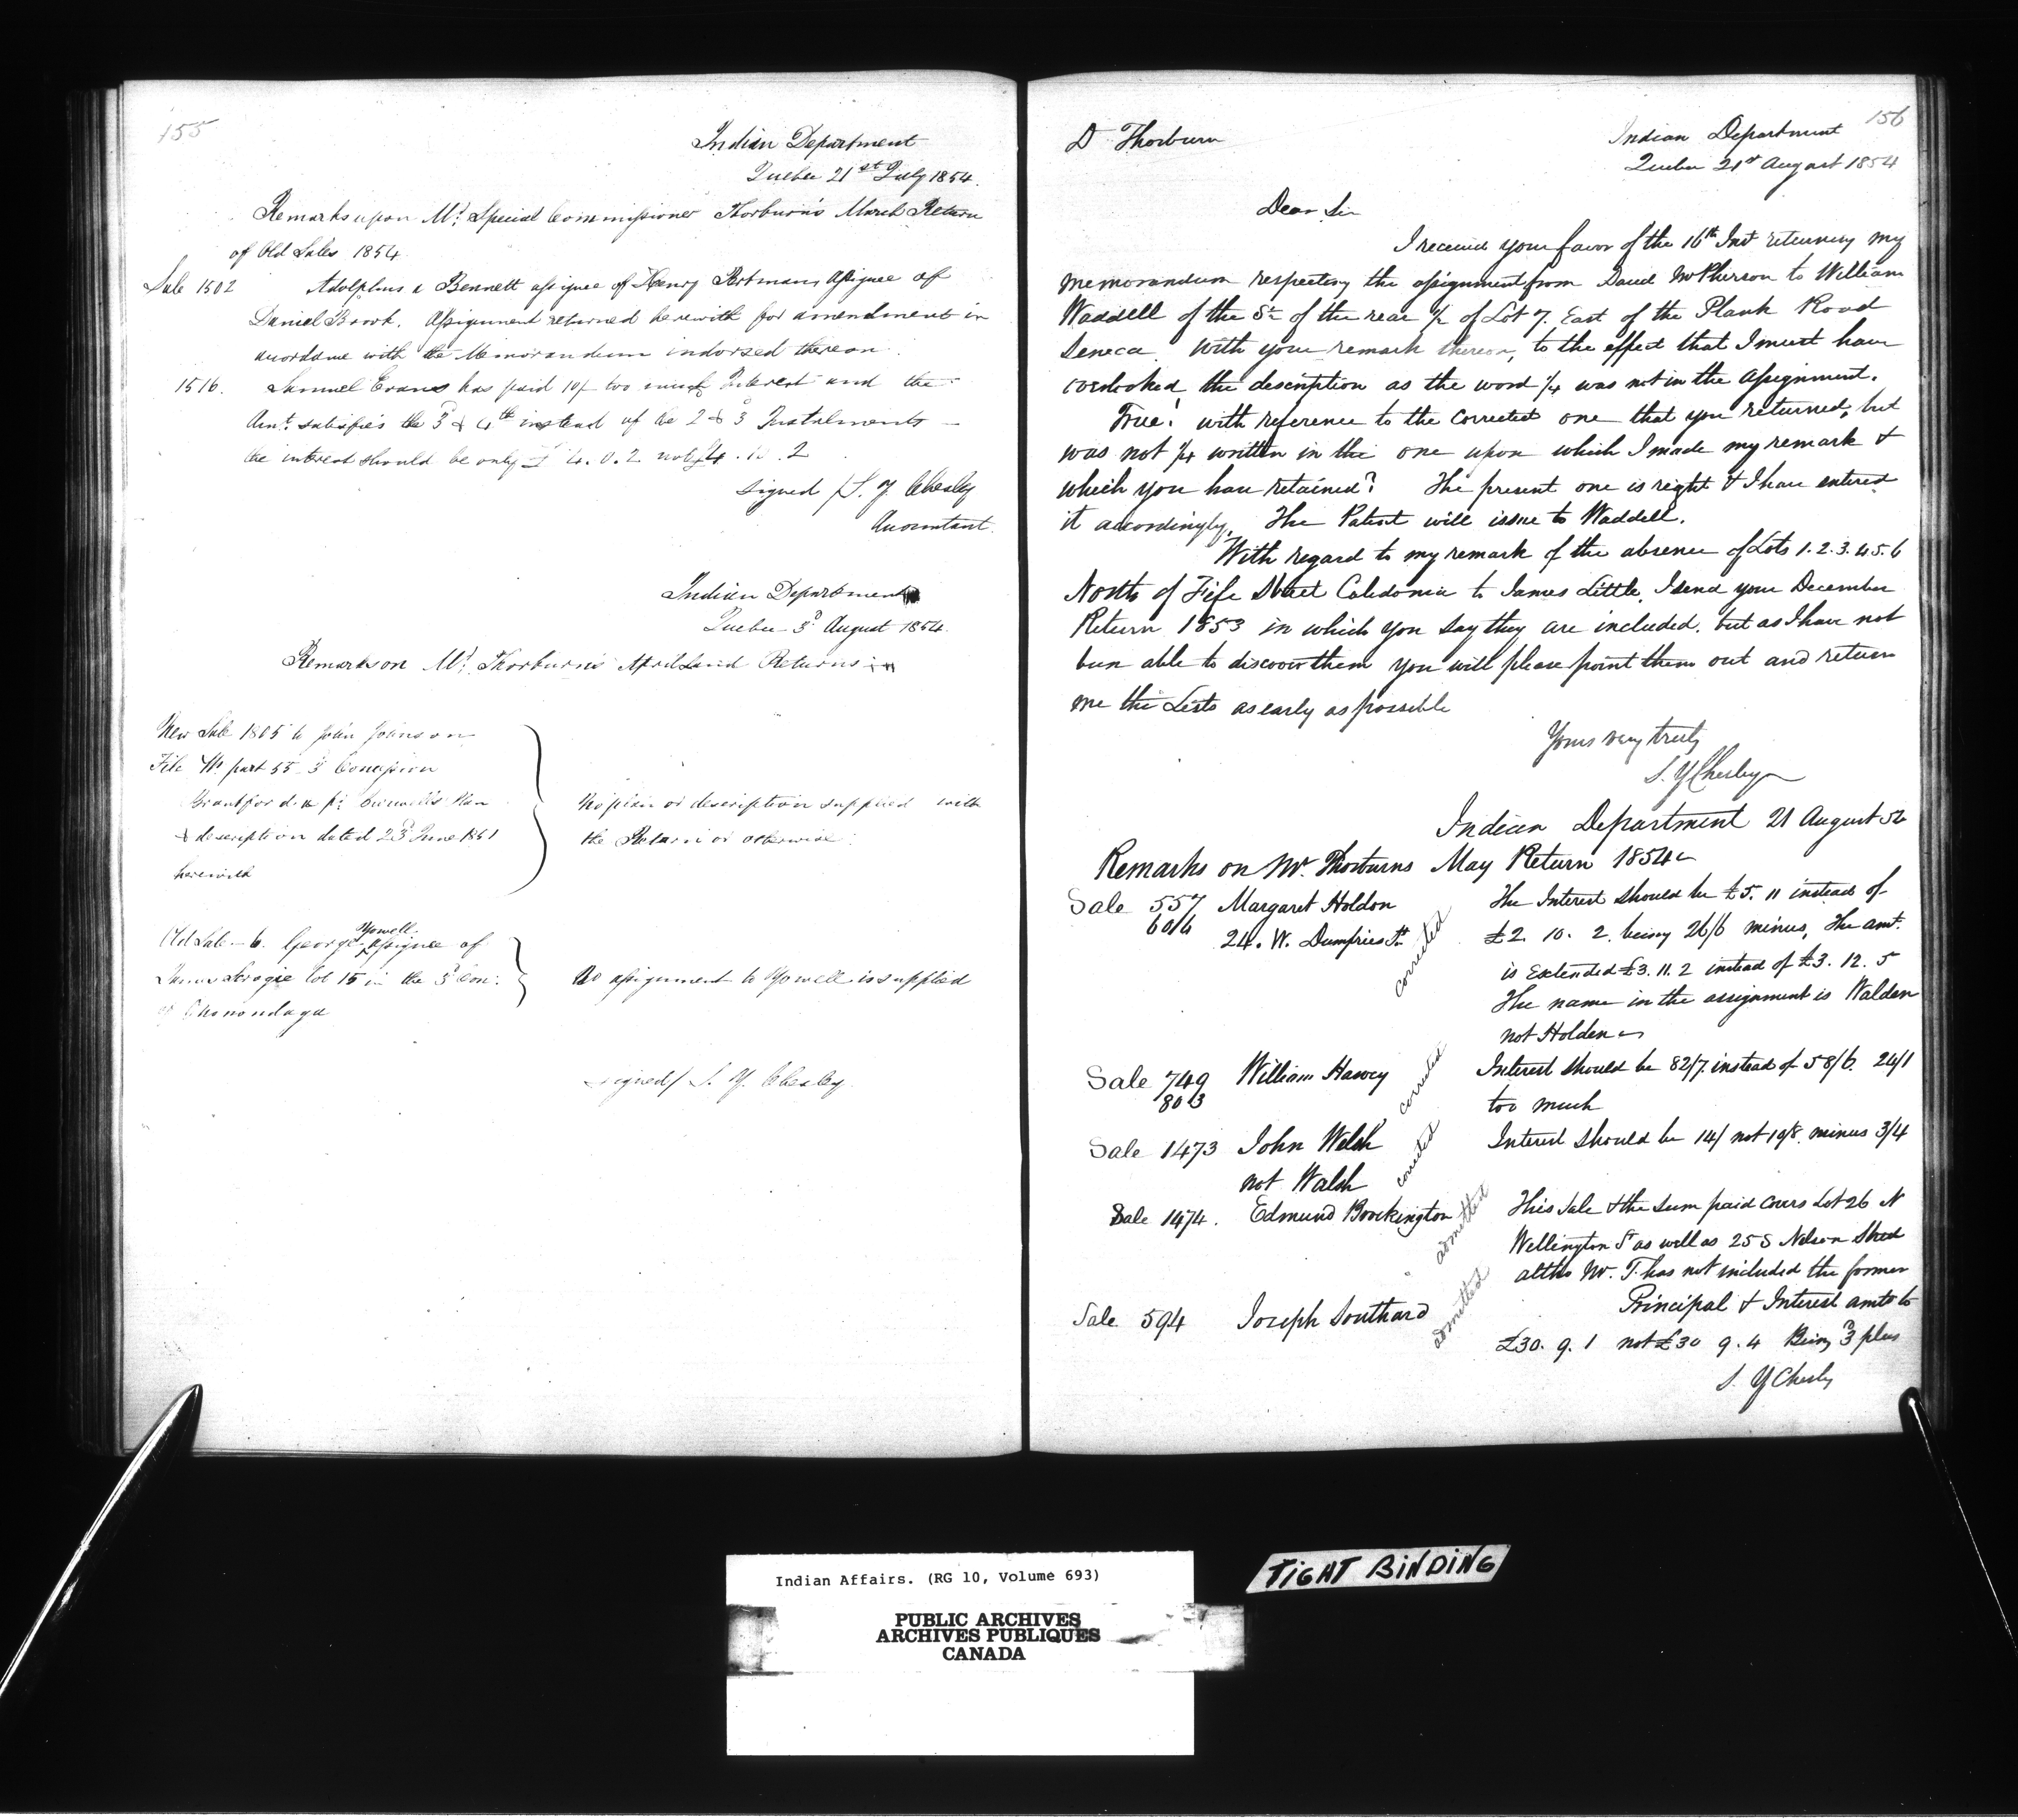 155
Indian Department
Quebec 21st July 1854.
Remarks upon Mr. Special Commissioner Thorburn's March Return
of Old Sales 1854
Sale 1502 Adolphus a Bennett assignee of Henry Assignee of
Daniel Brook. Assignment returned herewith for amendment in
accordance with the Memorandum indorsed thereon.
1516. Samuel Evans has paid 10/ too much Interest and the
Amt. satisfies the 3d & 4th instead of the 2 & 3 Instalments —
the interest should be only £4.0.2 not £4.10.2
signed / S. Y. Chesley
Accountant.
Indian Department
Quebec 3d August 1854.
Remarks on Mr. Thorburn's April Land Returns
New Sale 1805 to John Johnson
part 55 3d Concession
& description dated 23d June 1851
herewith
No plan or description supplied with
the Return or otherwise.
Old Sale — 6. George Yowell assignee of
James lot 15 in the 3d Con:
Onondaga
No assignment to Yowell is supplied
signed / S. Y. Chesley
156
D Thorburn
Indian Department
Quebec 21st August 1854
Dear Sir
I received your favor of the 16th Inst returning my
memorandum respecting the assignment from David McPherson to William
Waddell of the of the rear 1/2 of Lot 7. East of the Plank Road
Seneca. With your remark thereon, to the effect that I must have
overlooked the description as the word 1/4 was not in the Assignment.
True! with reference to the corrected one that you returned, but
was not 1/4 written in the one upon which I made my remark &
which you have retained? The present one is right & I have entered
it accordingly. The Patent will issue to Waddell.
With regard to my remark of the absence of Lots 1.2.3.4.5.6
North of Fife Street Caledonia to James Little. I send your December
Return 1853 in which you say they are included. but as I have not
been able to discover them you will please point them out and return
me the Lists as early as possible
Yours very truly
S. Y Chesley
Indian Department 21 August 54
Remarks on Mr. Thorburns May Return 1854
Sale 557 Margaret Holdon The Interest should be £5. 11 instead of
606 24. W. Dumfries St. corrected £2. 10. 2. being 26/6 minus, The amt.
is extended £3. 11. 2 instead of £3. 12. 5
The name in the assignment is Walden
not Holden
Sale 749 William Harvey corrected Interest should be 82/7 instead of 58/6. 24/1
803 too much
Sale 1473 John Welsh corrected Interest should be 14/ not 10/8. minus 3/4
not Walsh
Sale 1474. Edmund Boockington admitted This Sale & the sum paid covers Lot 26 N
Wellington St as well as 25 S Nelson Street
altho Mr. T. has not included the former
Sale 594 Joseph Southard admitted Principal & Interest amts to
£30. 9. 1 not £30 9. 4 Being 3d plus
S. Y Chesley
Indian Affairs. (RG 10, Volume 693)
PUBLIC ARCHIVES
ARCHIVES PUBLIQUES
CANADA
TIGHT BINDING